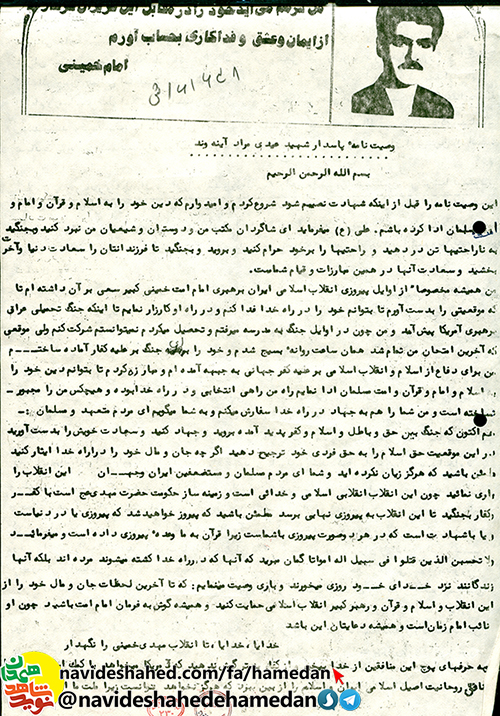 از ایمان وعشق و فداکاری بحساب آورم
امام خمینی
وصیت نامه پاسدار شهید مهدی مراد آینه وند
بسم الله الرحمن الرحیم
این وصیت نامه را قبل از اینکه شهادت نصیبم شود شروع کردم و امیدوارم که دین خود را به اسلام و قرآن و امام و
مسلمان ادا کرده باشم . علی (ع) میفرماید ای شاگردان مکتب من ودوستان و شیعیان من نبرد کنید وبجنگید
به ناراحتیها تن در دهید و راحتیها را برخود حرام کنید و بروید و بجنگید تا فرزندانتان را سعادت دنیا وآخرت
بخشید و سعادت آنها در همین مبارزات و قیام شماست.
من همیشه مخصوصا" از اوایل پیروزی انقلاب اسلامی ایران برهبری امام امت خمینی کبیر سعی بر آن داشته ام تا
که موقعیتی را بدست آورم تا بتوانم خود را در راه خدا فدا کنم و در راه او کارزار نمایم تا اینکه جنگ تحمیلی عراقی
آمریکا پیش آمد و من چون در اوایل جنگ به مدرسه میرفتم و تحصیل میکردم نمیتوانستم شرکت کنم ولی موقعی
که آخرین امتحان من تمام شد همان ساعت روانه بسیج شدم و خود را برای جنگ بر علیه کفار آماده ساختم
من برای دفاع از اسلام و انقلاب اسلامی بر علیه کفر جهانی به جبهه آمده ام و مبارزه کردم تا بتوانم دین خود را
اسلام و امام و قرآن و امت مسلمان ادا نمایم راه من راهی انتخابی و در راه خدا بوده و هیچکس من را مجبور
نساخته است و من شما را هم به جهاد در راه خدا سفارش میکنم و به شما میگویم ای مردم متعهد و مسلمان :
هم اکنون که جنگ بین حق و باطل و اسلام و کفر پدید آمده بروید و جهاد کنید و سعادت خویش را بدست آورید
در این موقعیت حق اسلام را به حق فردی خود ترجیح دهید اگر چه جان و مال خود را در راه خدا ایثار کنید
مطمئن باشید که هرگز زیان نکرده اید و شما ای مردم مسلمان و مستضعفین ایران وجهان این انقلاب را
یاری نمائید چون این انقلاب انقلابی اسلامی و خدائی است و زمینه ساز حکومت حضرت مهدی عج است با کفر
وکفار بجنگید تا این انقلاب به پیروزی نهایی برسد مطمئن باشید که پیروز خواهید شد که پیروزی یا در دنیاست
و یا باشهادت است که در هر دوصورت پیروزی باشماست زیرا قرآن به ما وعده پیروزی داده است و میفرماید
ولا تحسبن الذین قتلوا فی سبیل اله امواتا گمان مبرید که آنها که در راه خدا کشته میشوند مرده اند بلکه آنها
زندگانند نزد خدای خود روزی میخورند و باری وصیت مینمایم : که تا آخرین لحظات جان و مال خود را از
این انقلاب و اسلام و قرآن و رهبر کبیر انقلاب اسلامی حمایت کنید و همیشه گوش به فرمان امام امت باشید چون او
نائب امام زمان است و همیشه دعایتان این باشد
خدایا ، خدایا ، تا انقلاب مهدی خمینی را نگهدار
به حرفهای پوچ این منافقین از خدا
navideshahed.com/fa/hamedan
@navideshahedehamedan
نوید شاهد
همدان